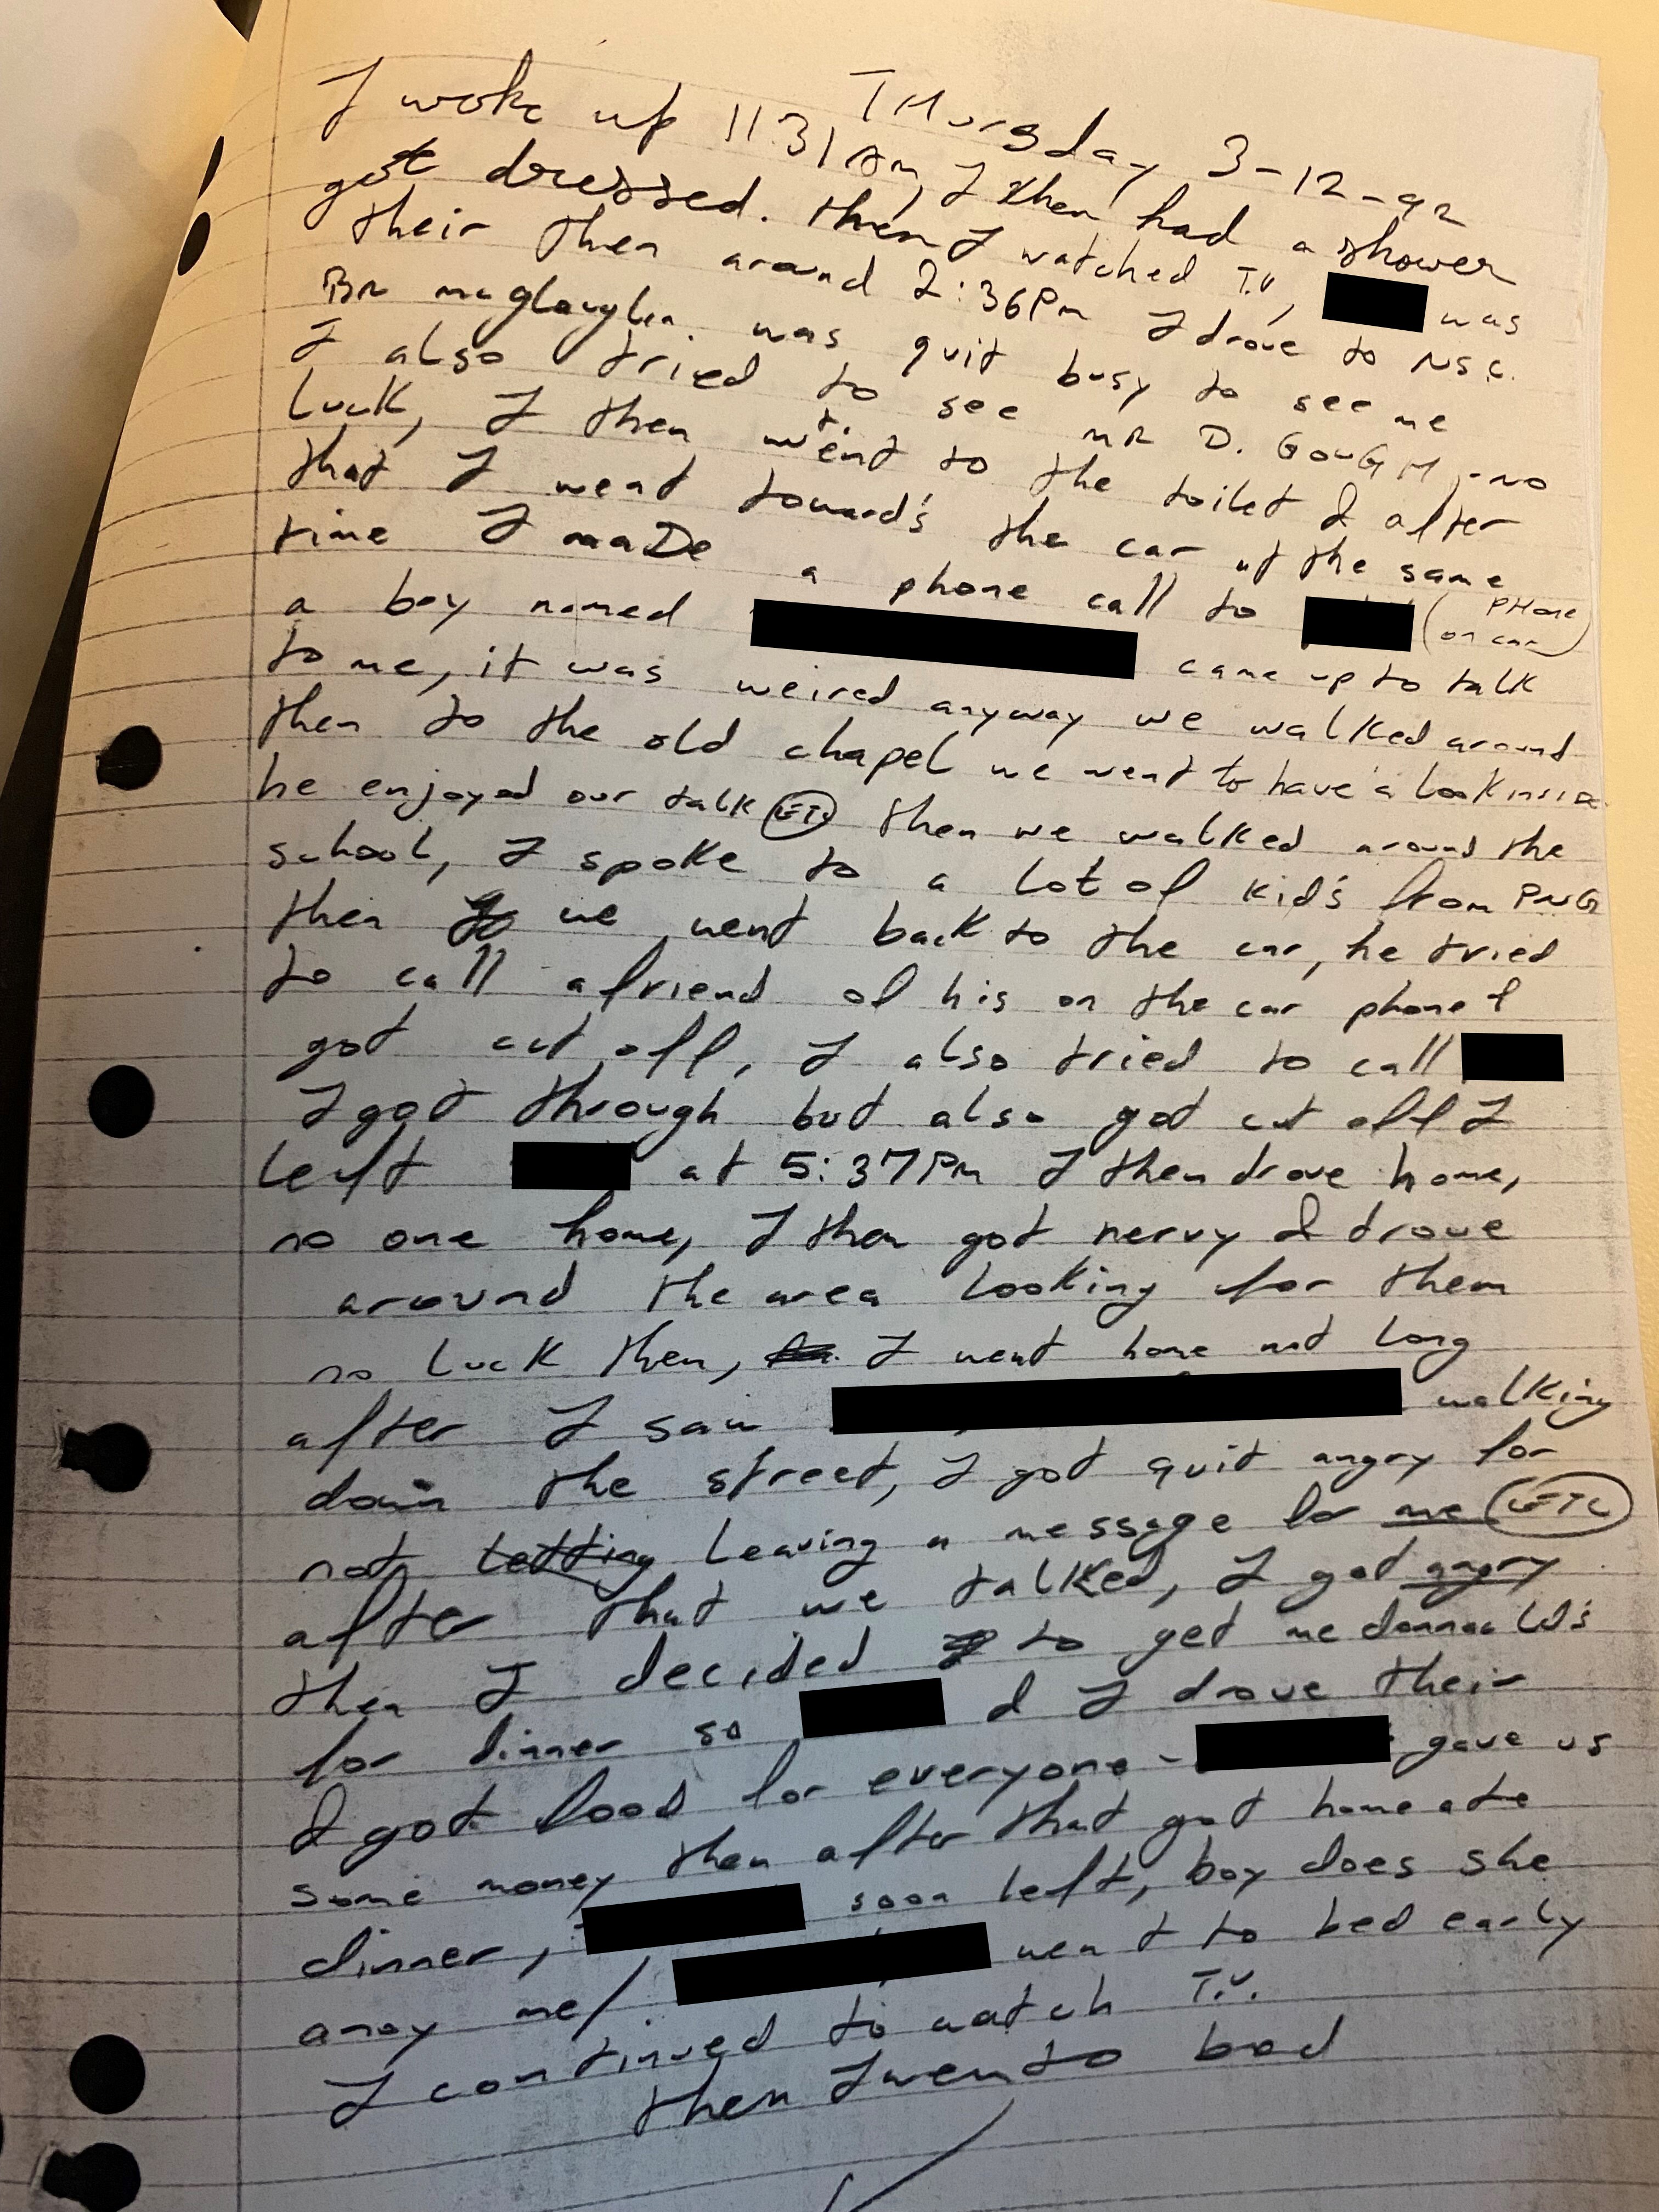 THursday 3-12-92
I woke up 11:31 Am, I then had a shower
got dressed. then I watched T.V, was
their then around 2:36Pm I drove to NSC.
BR was quit busy to see me
I also tried to see MR D. GOUGH, - no
Luck, I then went to the toilet & after
that I went toward's the car at the same
time I maDe a phone call to (PHone
on car)
a boy named came up to talk
to me, it was weired anyway we walked around
then to the old chapel we went to have a look inside
he enjoyed our talk ETC then we walked around the
school, I spoke to a Lot of kid's from PNG
then we went back to the car, he tried
to call a friend of his on the car phone &
got cut off, I also tried to call
I got through but also got cut off I
Left at 5:37Pm I then drove home,
no one home, I then got nervy & drove
around the area Looking for them
no Luck then, I went home not Long
after I saw walking
down the street, I got quit angry for
not Letting Leaving a message for me ETC
after that we talked, I got angry
then I decided to get
for dinner so & I drove their
& got food for everyone - gave us
some money then after that got home ate
dinner, soon Left, boy does she
anoy me/ went to bed early
I continued to watch T.V.
then I wen to bed